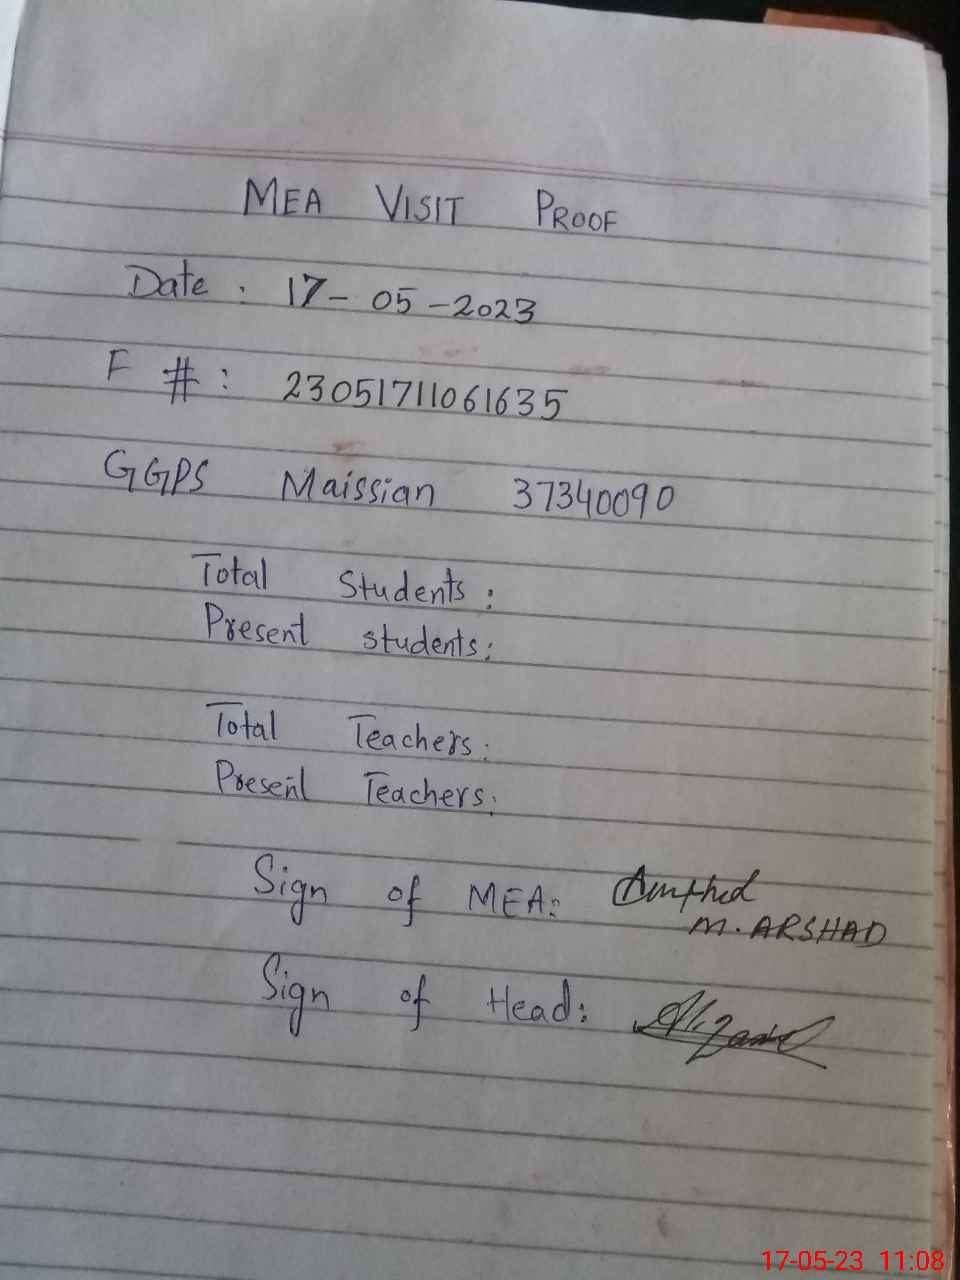 MEA VISIT PROOF
Date : 17-05-2023
F #: 23051711061635
GGPS Maissian 37340090
Total Students :
Present students :
Total Teachers :
Present Teachers :
Sign of MEA:
M. ARSHAD
Sign of Head:
17-05-23 11:08